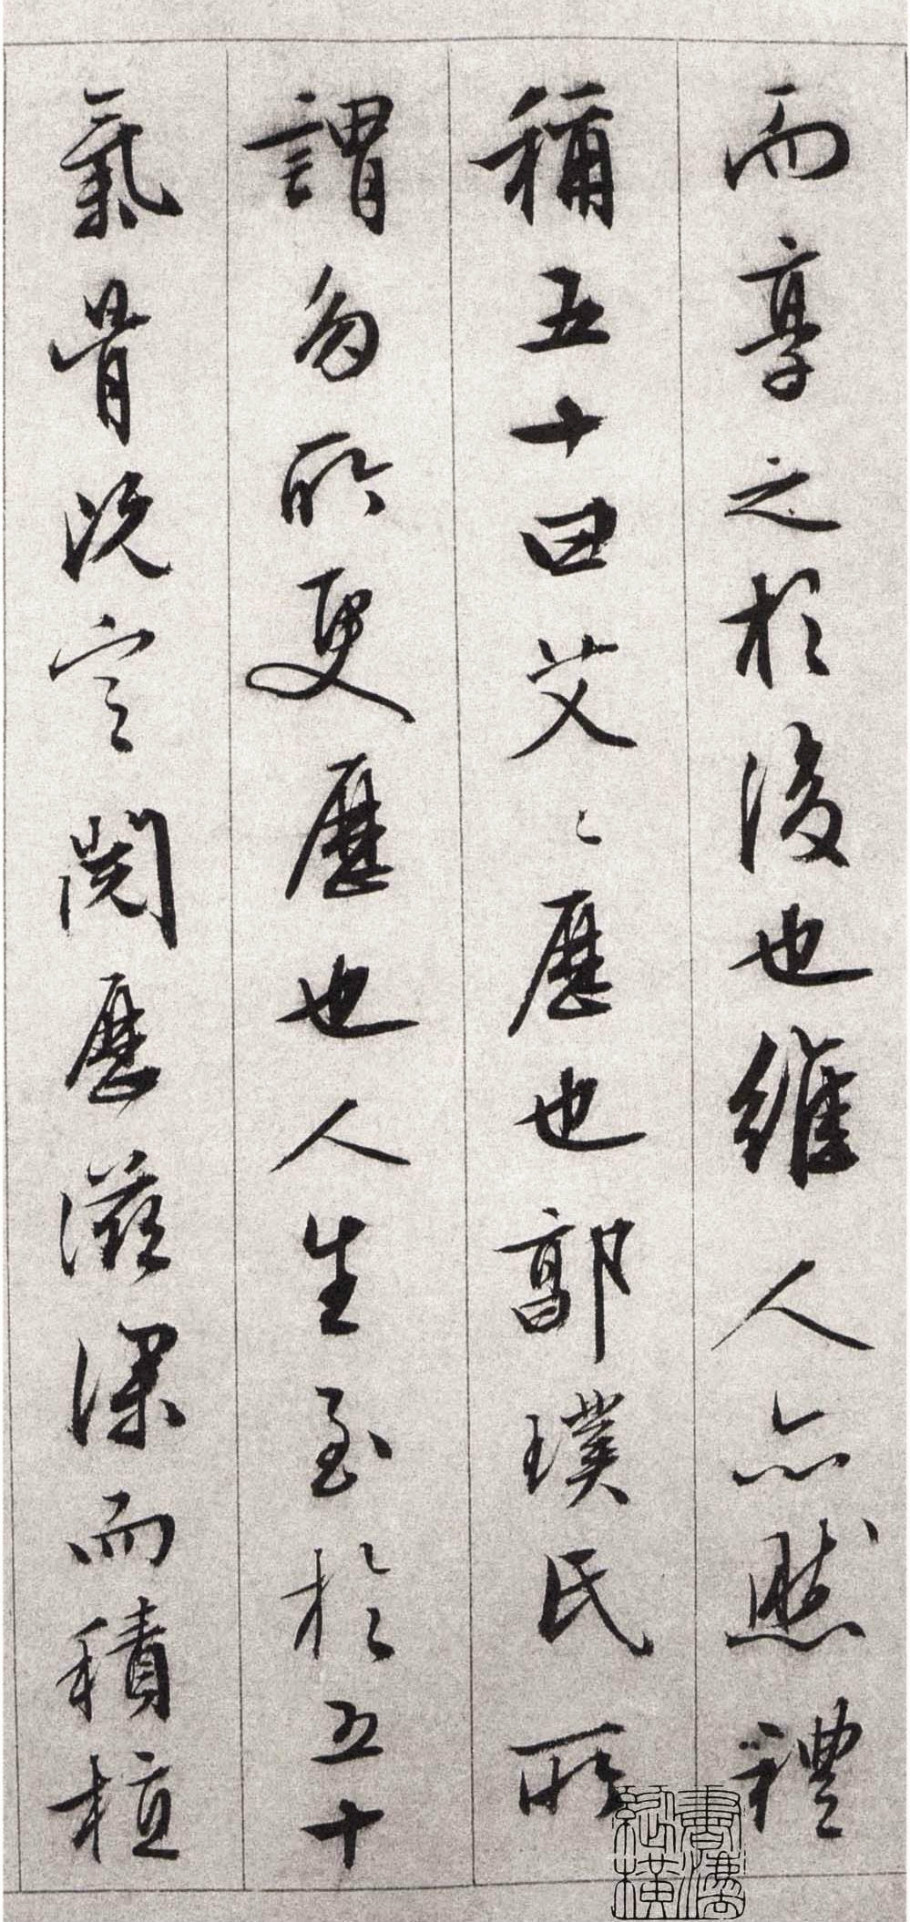 而享之於後也維人亦然禮
稱五十曰艾艾歷也郭璞氏所
謂多所更歷也人生至於五十
氣骨既定閱歷滋深而積植
書法縱橫